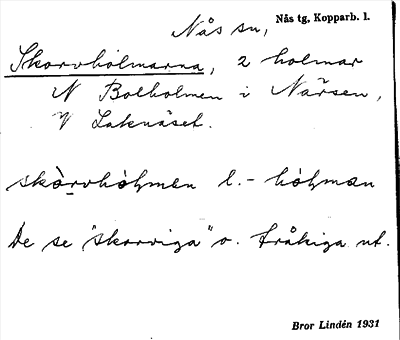 Nås sn, Nås tg, Kopparb. l.
Skorvholmarna, 2 holmar
N Bolholmen i Närsen,
V Laknäset.
skòrvhòɫmen l. - hòɫman
De se "skorviga" o. tråkiga ut.
Bror Lindén 1931